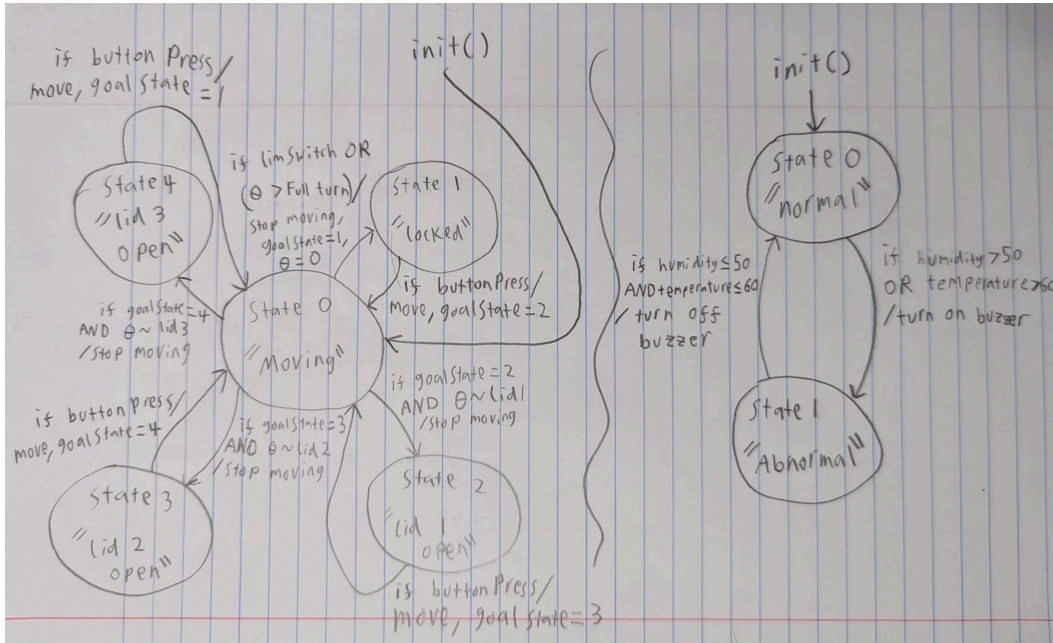 if button Press/
move, goalState
=1
init()
State 4
"lid 3
open"
if limSwitch OR
(θ > Full turn)/
Stop moving,
goalState=1,
θ=0
State 1
"locked"
if button Press/
move, goalState=2
State 0
"Moving"
if goalState=4
AND θ~lid 3
/Stop moving
if button Press/
move, goalState=4
if goalState=3
AND θ~Lid 2
/Stop moving
if goalState=2
AND θ~Lid 1
/Stop moving
State 3
"lid 2
open"
State 2
"lid 1
open"
if button Press/
move, goal State=3
init()
State 0
"normal"
if humidity≤50
AND temperature≤60
/ turn off
buzzer
if humidity>50
OR temperature>60
/turn on buzzer
State 1
"Abnormal"